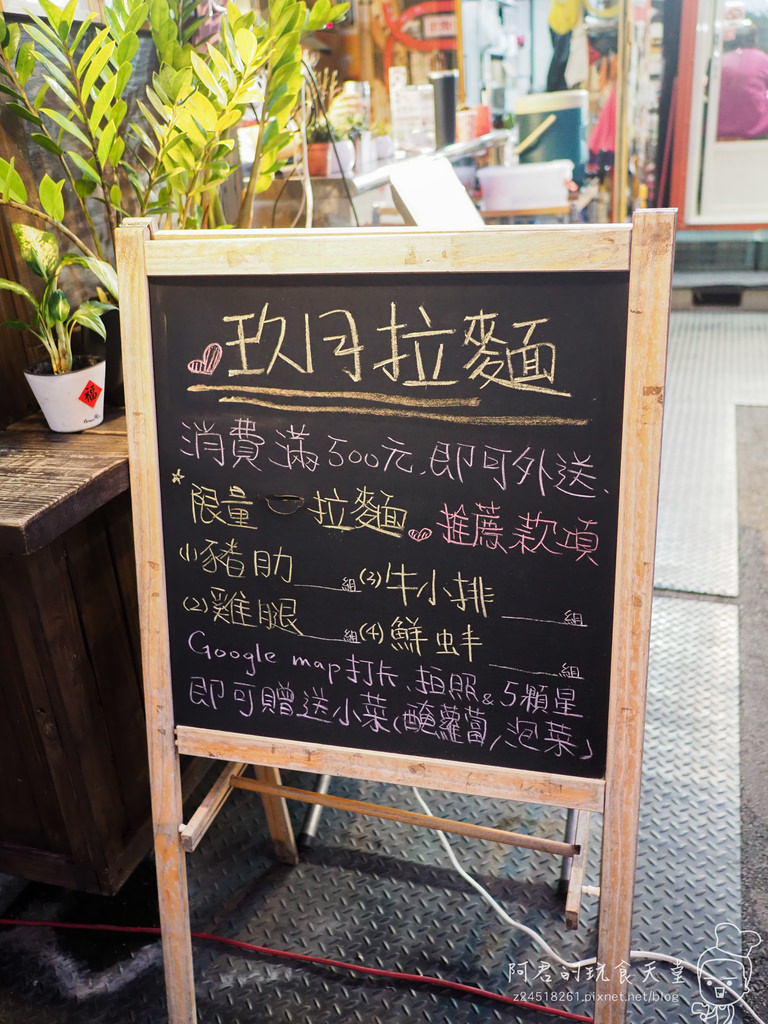 玖月拉麵
消費滿500元,即可外送、
限量 拉麵 推薦款項
(1)豬肋___組 (3)牛小排___組
(2)雞腿___組 (4)鮮蚌___組
Google map打卡、拍照&5顆星
即可贈送小菜(醃蘿蔔/泡菜)
福
阿君的玩食天堂
z24518261.pixnet.net/blog